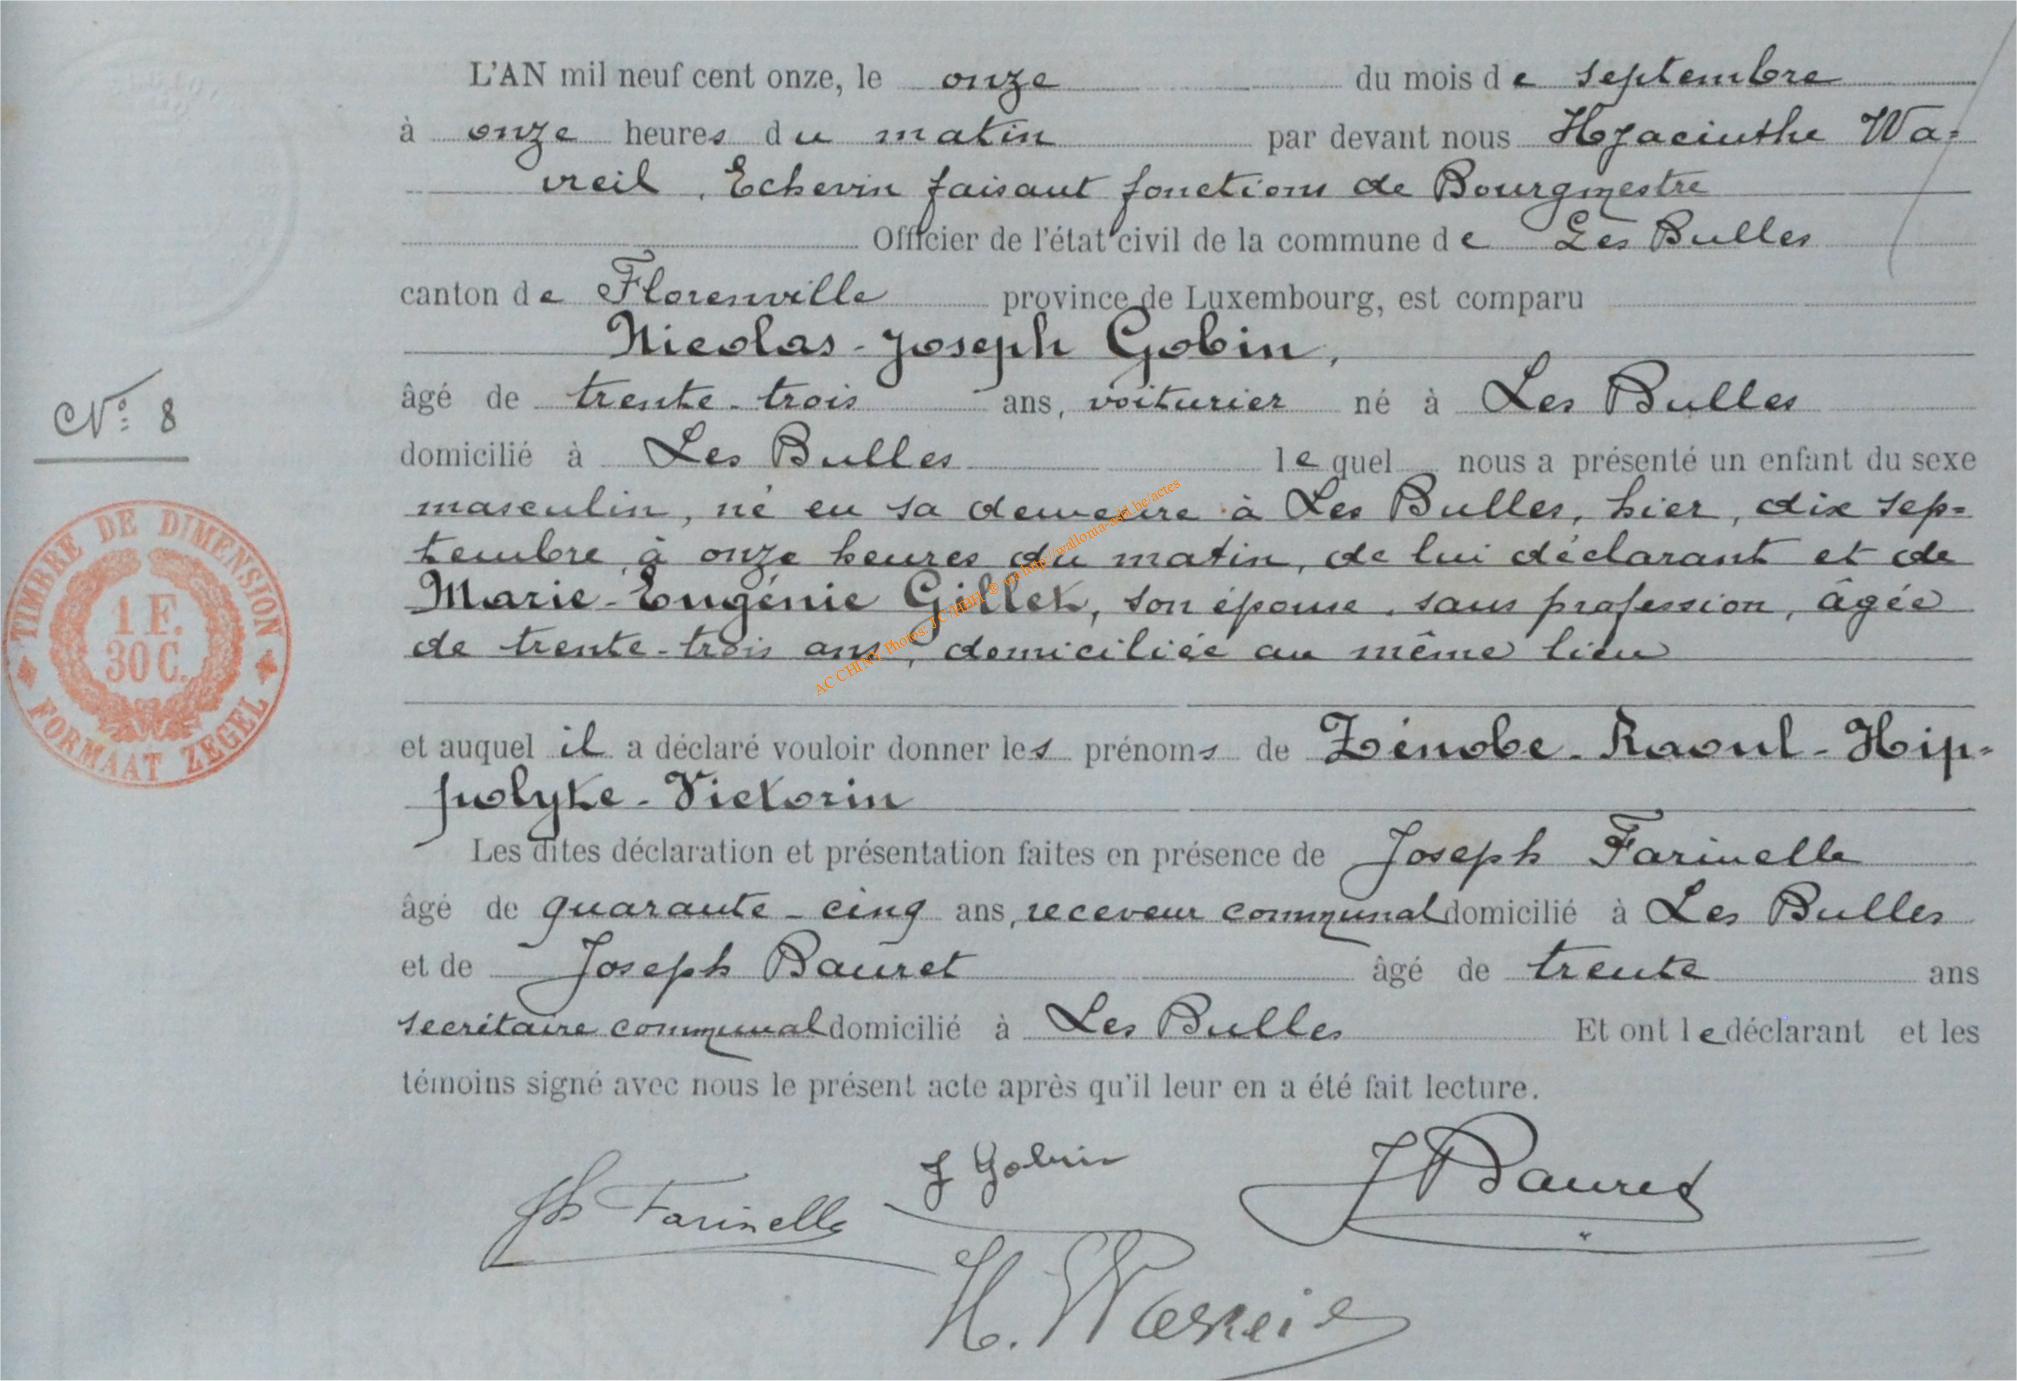 L'AN mil neuf cent onze, le onze du mois de septembre
à onze heures du matin par devant nous Hyacinthe Wa-
vreil, Echevin faisant fonctions de Bourgmestre
Officier de l'état civil de la commune de Les Bulles
canton de Florenville province de Luxembourg, est comparu
Nicolas-Joseph Gobin,
âgé de trente-trois ans, voiturier né à Les Bulles
N° 8
domicilié à Les Bulles lequel nous a présenté un enfant du sexe
masculin, né en sa demeure à Les Bulles, hier, dix sep-
tembre à onze heures du matin, de lui déclarant et de
Marie-Eugénie Gillet, son épouse, sans profession, âgée
de trente-trois ans, domiciliée au même lieu
TIMBRE DE DIMENSION
1 F.
30 C.
FORMAAT ZEGEL
et auquel il a déclaré vouloir donner les prénoms de Zénobe-Raoul-Hip-
polyte-Victorin
Les dites déclaration et présentation faites en présence de Joseph Farinelle
âgé de quarante-cinq ans, receveur communal domicilié à Les Bulles
et de Joseph Bauret âgé de trente ans
secrétaire communal domicilié à Les Bulles Et ont le déclarant et les
témoins signé avec nous le présent acte après qu'il leur en a été fait lecture.
J Gobin
Jh Farinelle
J Bauret
H. Wavreil